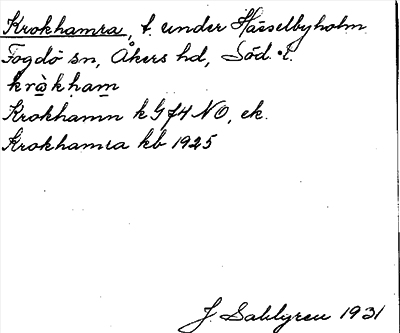 Krokhamra, t. under Hässelbyholm
Fogdö sn, Åkers hd, Söd. l.
krokham
Krokhamn k G f4 NO, ek.
Krokhamra kb 1925
J. Sahlgren 1931